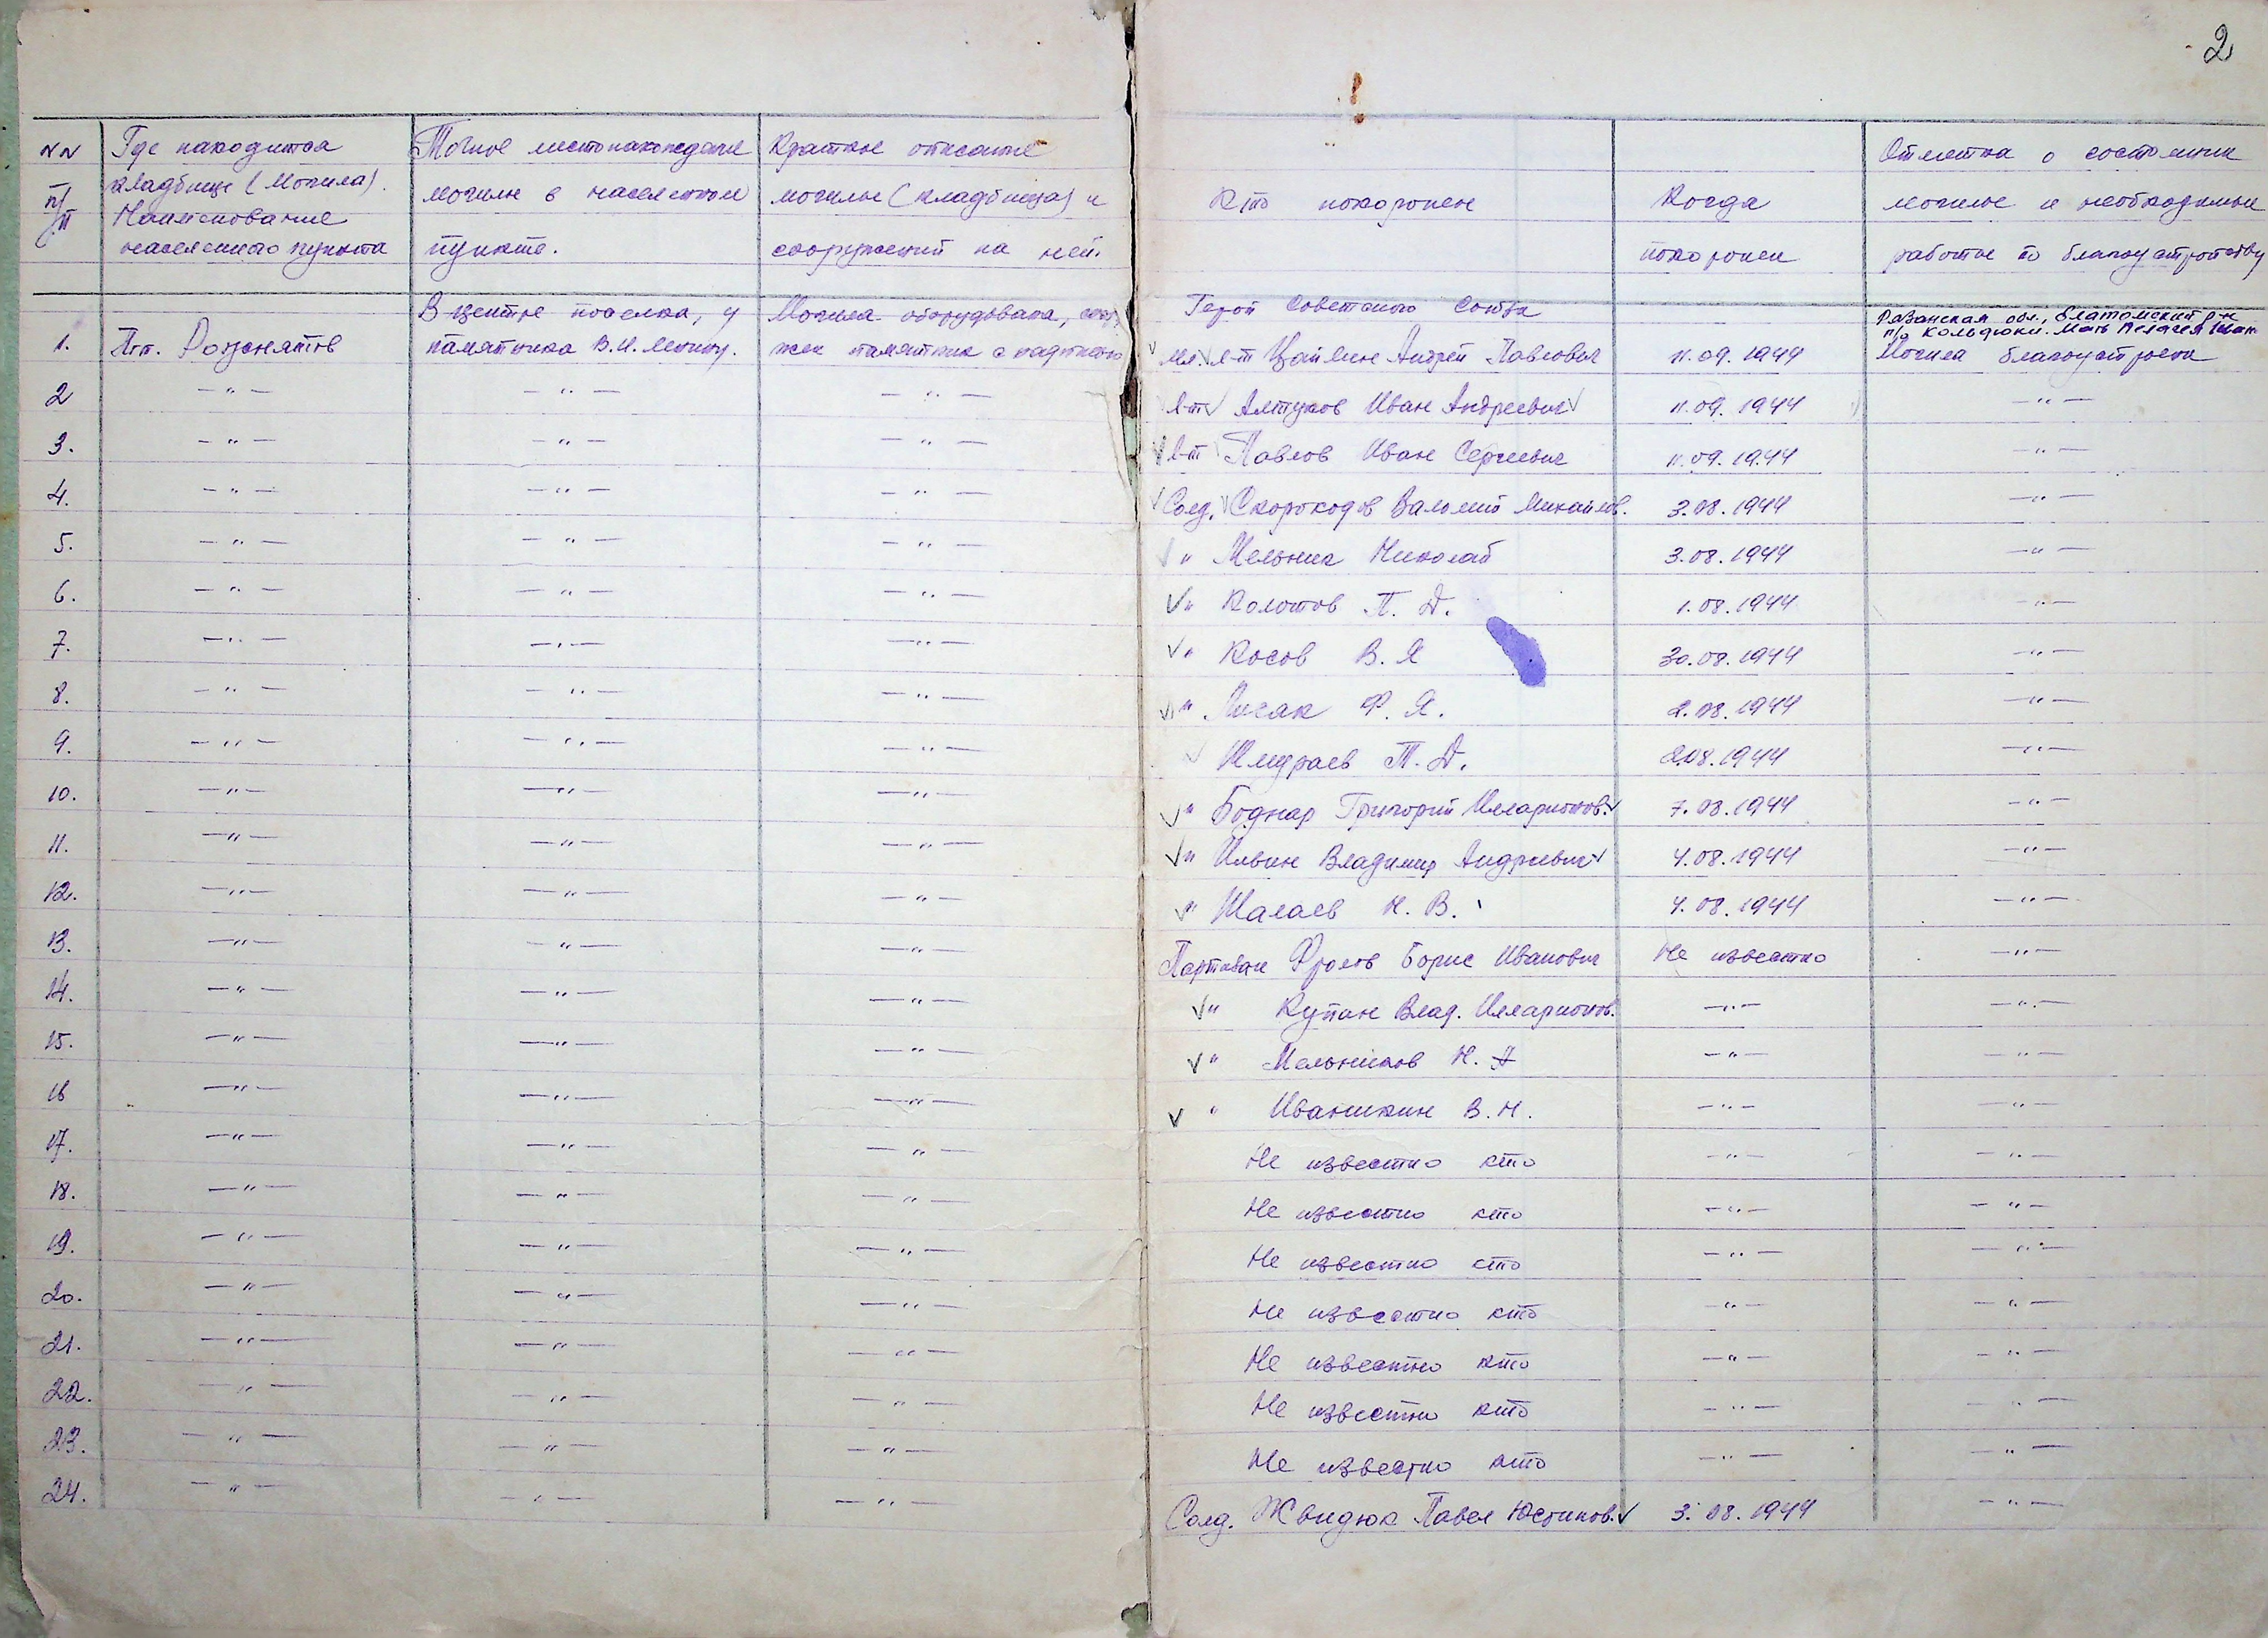 2
NN п/п
Где находится
кладбище (Могила).
Наименование
населенного пункта
Точное местонахождение
могилы в населенном
пункте.
Краткое описание
могилы (кладбища) и
сооружений на ней.
Кто похоронен
Когда
похоронен
Отметка о состоянии
могилы и необходимые
работы по благоустройству
Герой Советского Союза
Рязанская обл., Елатомский р-н
п/о Кольдюки. Мать Пелагея
1. Пгт. Рожнятов В центре поселка, у памятника В.И. Ленину. Могила оборудована, памятник с надписью мл. л-т Цаплин Андрей Павлович 11.09.1944 Могила благоустроена
2 -"- -"- -"- л-т Алтухов Иван Андреевич 11.09.1944 -"-
3. -"- -"- -"- л-т Павлов Иван Сергеевич 11.09.1944 -"-
4. -"- -"- -"- Солд. Скороходов Михайлов. 3.08.1944 -"-
5. -"- -"- -"- " Мельник Николай 3.08.1944 -"-
6. -"- -"- -"- " Колотов П. Д. 1.08.1944 -"-
7. -"- -"- -"- " Косов В. Я 30.08.1944 -"-
8. -"- -"- -"- " Лисак Ф. Я. 2.08.1944 -"-
9. -"- -"- -"- Шмураев Т. Д. 2.08.1944 -"-
10. -"- -"- -"- " Боднар Григорий Илларионов. 7.08.1944 -"-
11. -"- -"- -"- " Ильин Владимир Андреевич 4.08.1944 -"-
12. -"- -"- -"- " Шалаев Н. В. 4.08.1944 -"-
13. -"- -"- -"- Партизан Фролов Борис Иванович Не известно -"-
14. -"- -"- -"- " Купан Влад. Илларионов. -"- -"-
15. -"- -"- -"- " Мельников Н. А -"- -"-
16 -"- -"- -"- " Иванькин В. Н. -"- -"-
17. -"- -"- -"- Не известно кто -"- -"-
18. -"- -"- -"- Не известно кто -"- -"-
19. -"- -"- -"- Не известно кто -"- -"-
20. -"- -"- -"- Не известно кто -"- -"-
21. -"- -"- -"- Не известно кто -"- -"-
22. -"- -"- -"- Не известно кто -"- -"-
23. -"- -"- -"- Не известно кто -"- -"-
24. -"- -"- -"- Солд. Жвидюк Павел Юстинов. 3.08.1944 -"-